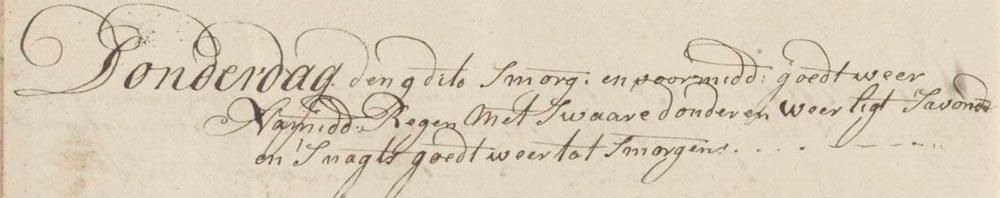 Donderdag den 9 dito Smorg: en voormidd: goedt weer
Namidd: Regen Met Swaare donder en weer ligt Savonds
en Snagts goedt weer tot Smorgens. . . . . - - - -